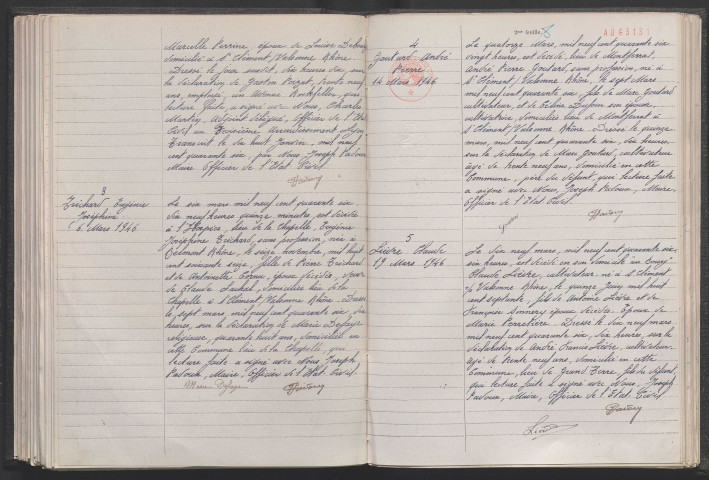 Marcelle Perrine, épouse de Louise
domiciliée à St Clément, Valsonne Rhône
Dressé le jour susdit, dix heures dix, sur
la déclaration de Gaston trente neuf
ans, employé, six Avenue Rockfeller, qui
lecture faite, a signé avec Nous, Charles
Martin, Adjoint délégué, Officier de l'Etat
Civil du Troisième Arrondissement Lyon
Transcrit le dix huit Janvier, mil neuf
cent quarante six, par Nous Joseph Padoun
Maire Officier de l'Etat Civil
3
Trichard Eugénie
Joséphine
6 Mars 1946
Le six mars mil neuf cent quarante six,
dix neuf heures quinze minutes, est décédée
à l'Hospice, lieu de la Chapelle, Eugénie
Joséphine Trichard, sans profession, née à
Rhône, le seize novembre, mil huit
cent soixante seize, fille de Pierre Trichard
et de Antoinette époux décédés, Veuve
de Claude domiciliée lieu de la
Chapelle à St Clément Valsonne Rhône, Dressé
le sept mars, mil neuf cent quarante six, dix
heures, sur la déclaration de Marie
religieuse, quarante huit ans, domiciliée en
cette Commune lieu de la Chapelle, qui
lecture faite a signé avec Nous Joseph
Padoun, Maire, Officier de l'Etat Civil
8
A063131
4
Goutard André
Pierre
14 Mars 1946
Le quatorze Mars, mil neuf cent quarante six
vingt heures, est décédé, lieu de Montferrat,
André Pierre Goutard, sans profession, né à
St Clément, Valsonne Rhône, le sept Mars
mil neuf cent quarante six, fils de Marc Goutard
cultivateur, et de son épouse,
cultivatrice, domiciliés lieu de Montferrat à
St Clément Valsonne Rhône. Dressé le quinze
mars, mil neuf cent quarante six, dix heures,
sur la déclaration de Marc Goutard, cultivateur
âgé de trente neuf ans, domicilié en cette
Commune, père du défunt, qui lecture faite
a signé avec Nous, Joseph Padoun, Maire,
Officier de l'Etat Civil
5
Lièvre Claude
19 Mars 1946
Le dix neuf mars, mil neuf cent quarante six
six heures, est décédé en son domicile au bourg
Claude Lièvre, cultivateur, né à St Clément
s/ Valsonne Rhône, le quinze Juin mil huit
cent septante, fils de Antoine Lièvre et de
Françoise Sonnery époux décédés, Epoux de
Marie Ferratière. Dressé le dix neuf mars
mil neuf cent quarante six, dix heures, sur la
déclaration de André Lièvre, cultivateur
âgé de trente neuf ans, domicilié en cette
Commune, lieu de fils du défunt,
qui lecture faite a signé avec Nous, Joseph
Padoun, Maire, Officier de l'Etat Civil